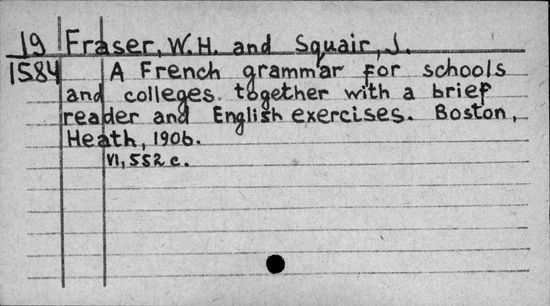 19 Fraser, W.H. and Squair, J.
1584 A French grammar for schools
and colleges together with a brief
reader and English exercises. Boston,
Heath, 1906.
VI, 552 c.